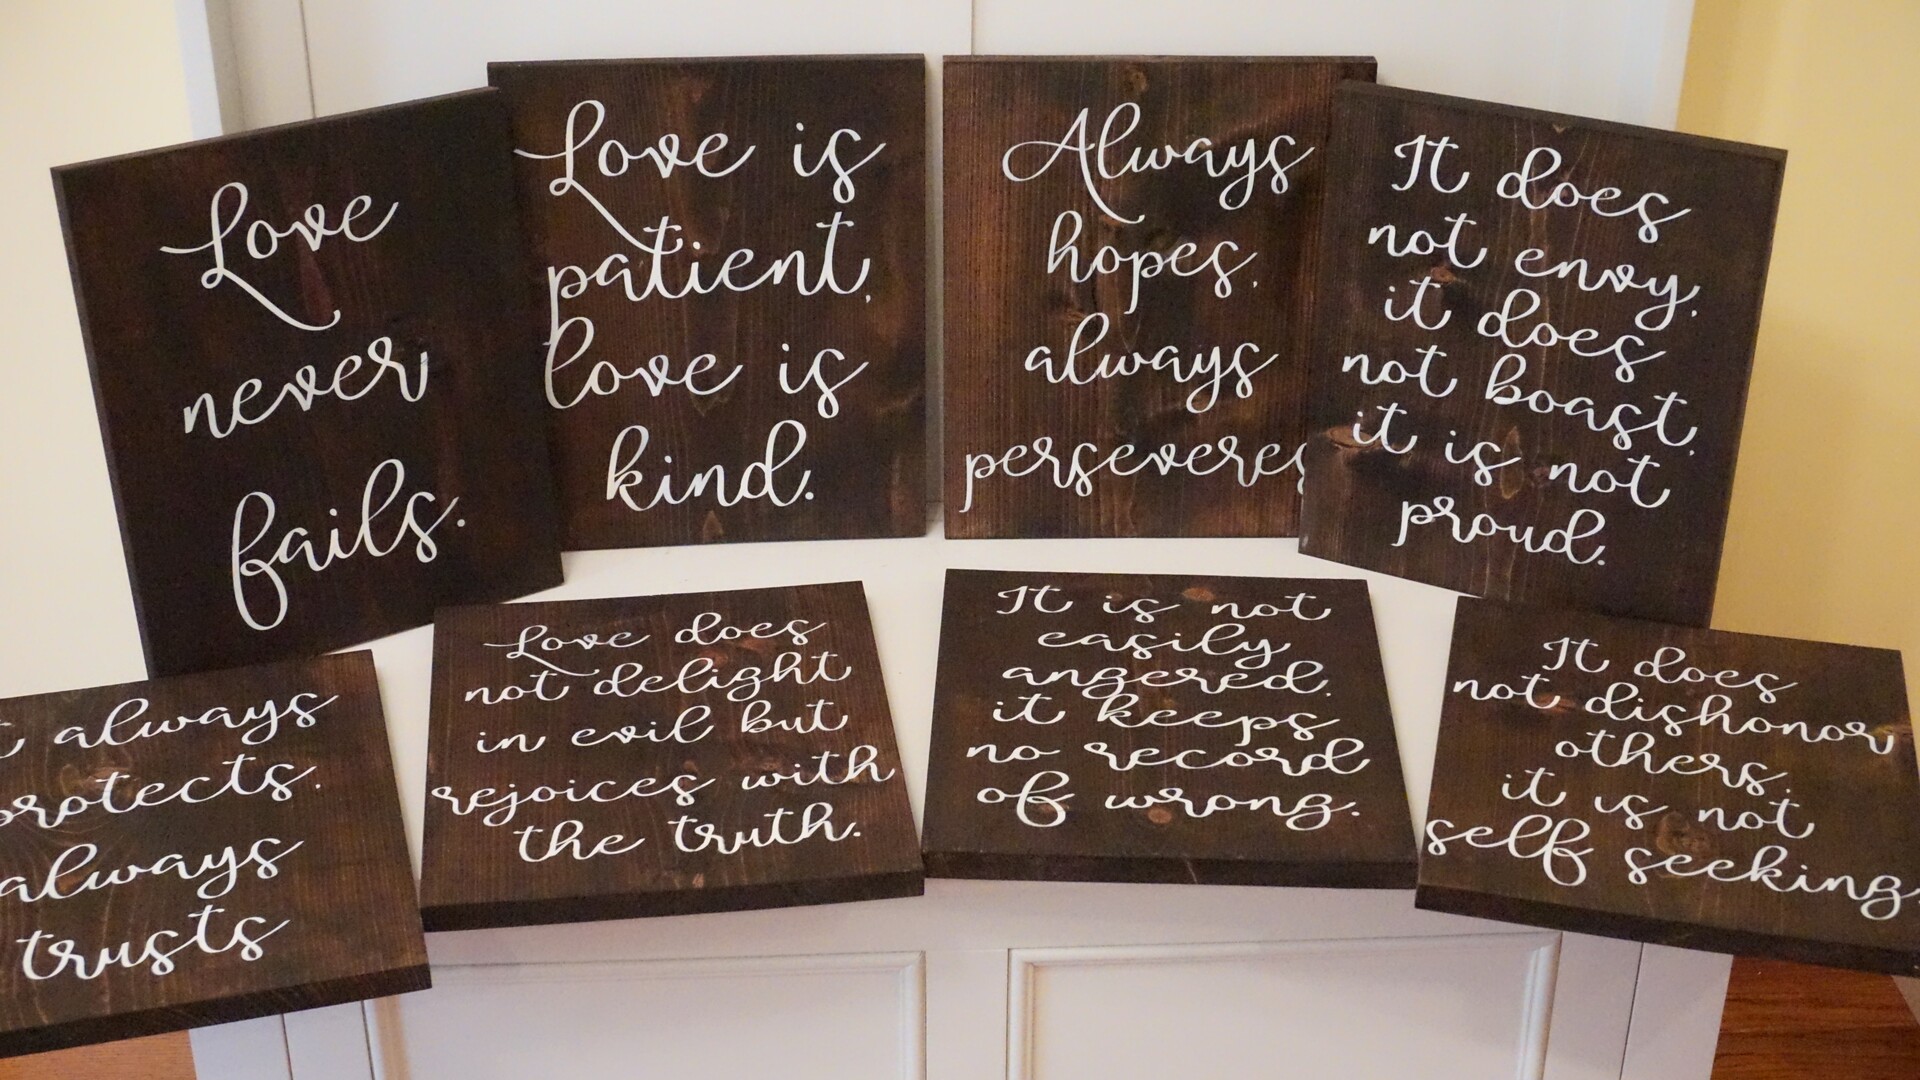 Love
never
fails.
Love is
patient,
love is
kind.
Always
hopes,
always
perseveres
It does
not envy,
it does
not boast,
it is not
proud.
always
protects,
always
trusts
Love does
not delight
in evil but
rejoices with
the truth.
It is not
easily
angered,
it keeps
no record
of wrong.
It does
not dishonor
others,
it is not
self seeking